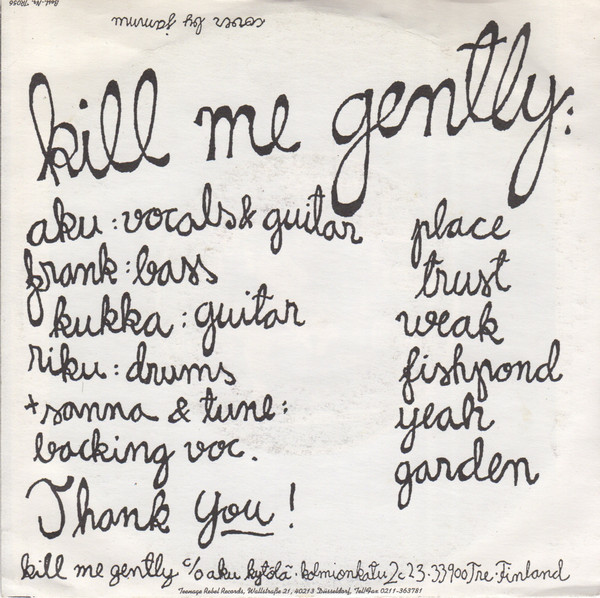 Best.-Nr. TR056
cover by jammu
kill me gently:
aku : vocals & guitar
frank : bass
kukka : guitar
riku : drums
+ sanna & tune :
backing voc.
Thank you !
place
trust
weak
fishpond
yeah
garden
kill me gently c/o aku kytölä · kolmionkatu 2c23 · 33900 Tre Finland
Teenage Rebel Records, Wallstraße 21, 40213 Düsseldorf, Tel/Fax 0211-363781